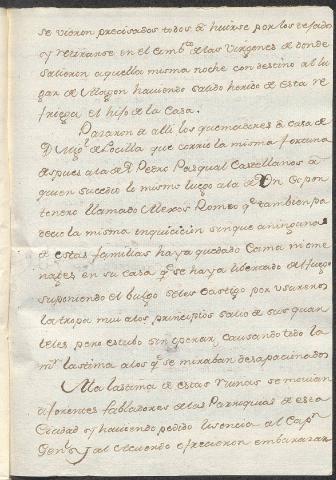 se vieron precisados todos à huirse por los texados
y retirarse en el Comb.to de las Virgenes de donde
salieron aquella misma noche con destino al lu
gar de Villagon haviendo salido herido de esta re
friega el hijo de la Casa.
Pasaron de alli los quemadores à casa de
D. Mig.l de Losilla que corrió la misma fortuna
despues a la de D. Pedro Pasqual Castellanos à
quien sucedio lo mismo luego a la de Un Carpin
tenero llamado Alexos Romeo q.e tambien pa
decio la misma inquicicion sin que a ninguna
de estas familias haya quedado Cama ni ome
nages en su casa q.e se haya libertado del fuego
suponiendo el bulgo ser los castigo por usureros
la tropa mui a los principios salio de sus quar
teles pero estubo sin operar, causando toda la
m.r lastima a los q.e se miraban desapacinados
A la lastima de estas ruinas se movian
diferentes fabladores de las Parroquias de esta
Ciudad y haviendo pedido lisencia al Cap.n
Gen.l y al Acuerdo ofrecieron embarazar